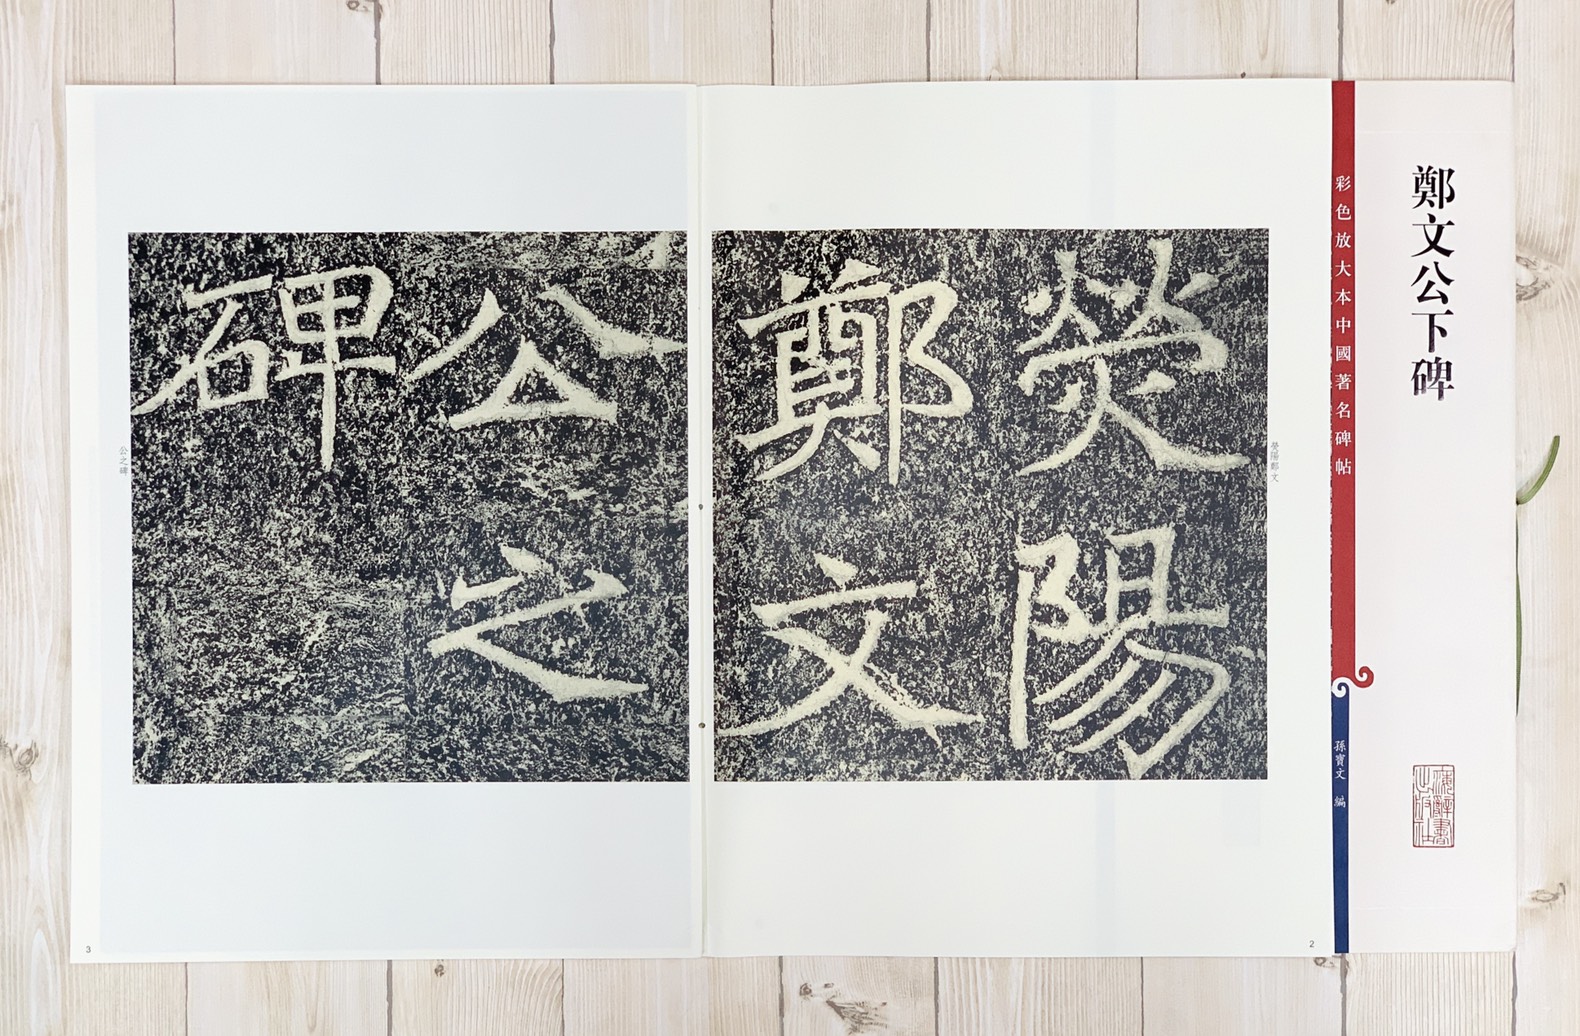 鄭文公下碑
海辭書出版社
彩色放大本中國著名碑帖
孫寶文 編
滎陽鄭文
熒陽
鄭文
2
公之
碑
公之碑
3